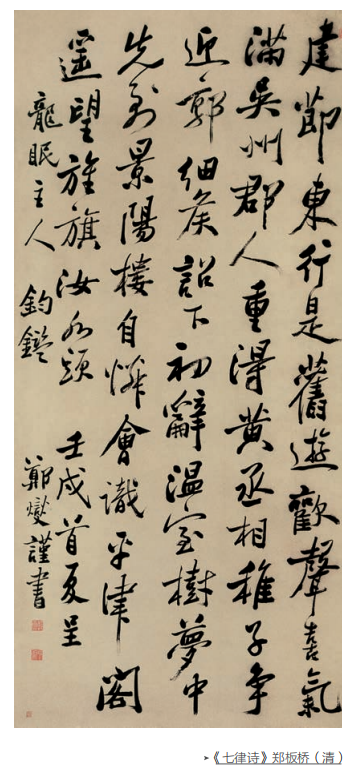 建節東行是舊遊歡聲喜氣
滿吳州郡人重得黃丞相稚子爭
迎郭細侯詔下初辭溫室樹夢中
先到景陽樓自憐會識平津閣
遙望旌旗汝水頭 壬戌首夏呈
龍眠主人 鈞鑒 鄭燮謹書
➤《七律诗》郑板桥（清）